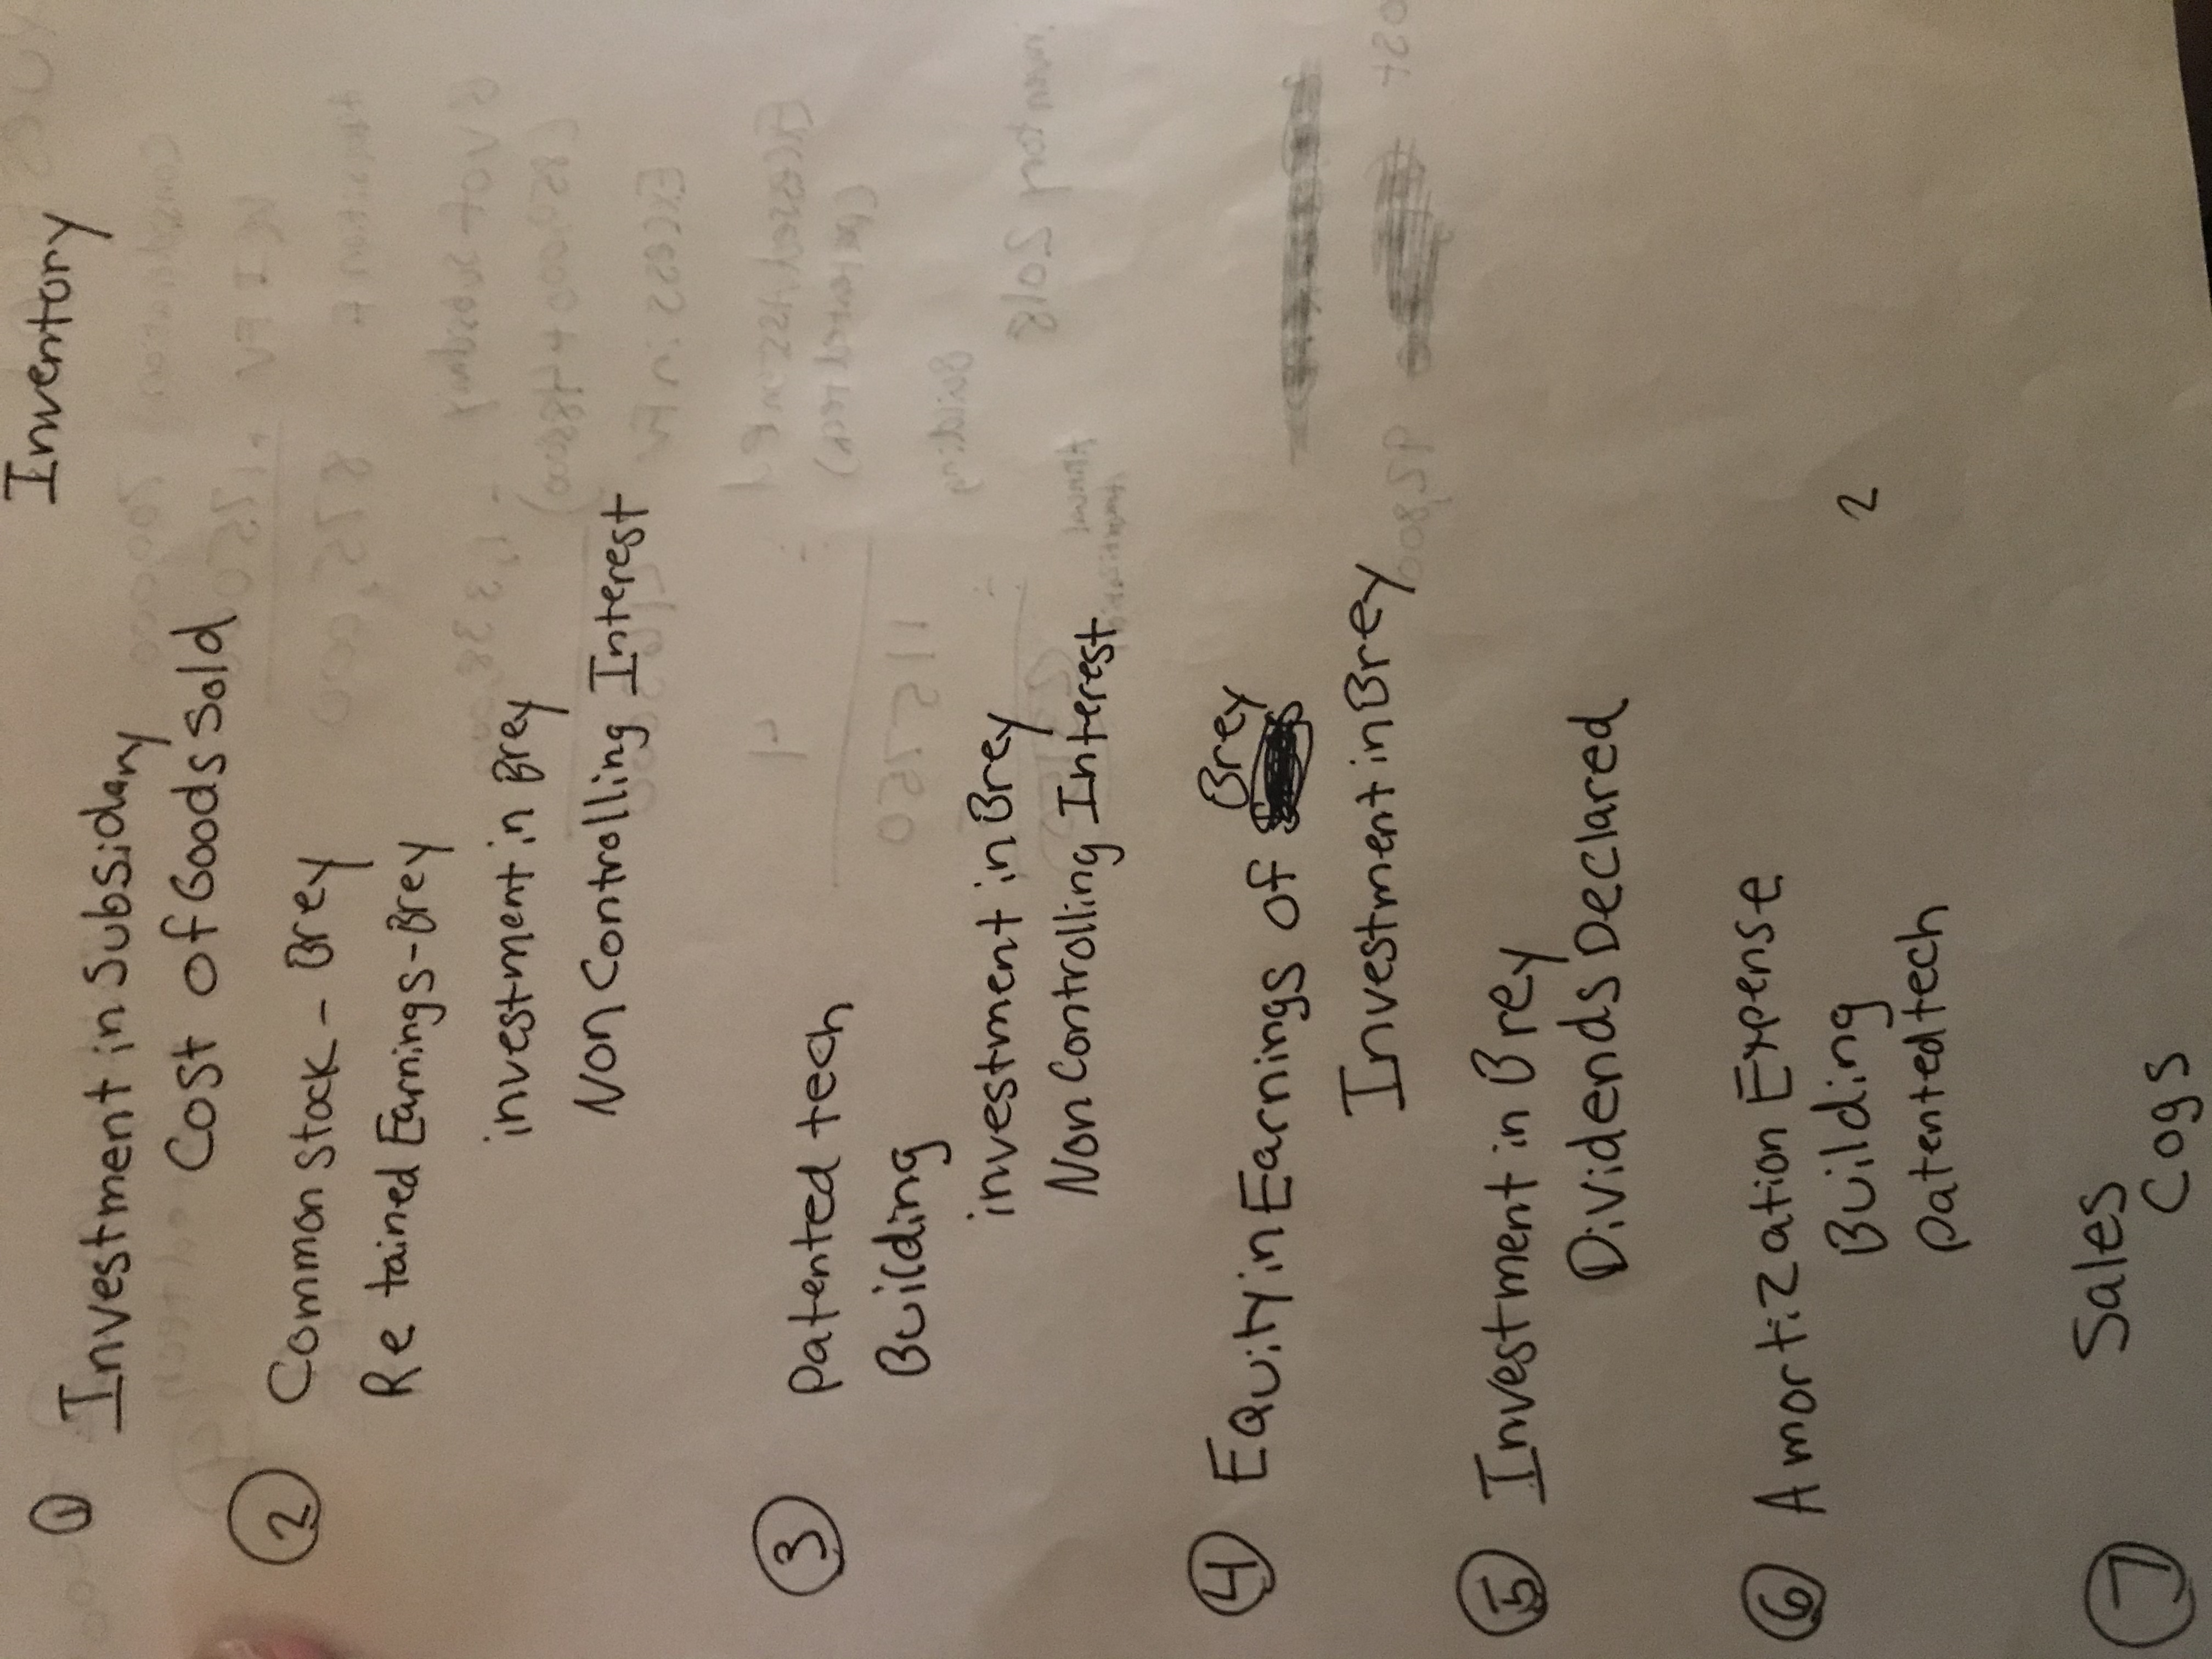 Inventory
① Investment in Subsidary
Cost of Goods Sold
② Common Stock - Brey
Retained Earnings - Brey
investment in Brey
Non Controlling Interest
③ patented tech
Building
investment in Brey
Non Controlling Interest
④ Equity in Earnings of Brey
Investment in Brey
⑤ Investment in Brey
Dividends Declared
⑥ Amortization Expense
Building
patented tech
2
⑦ Sales
Cogs